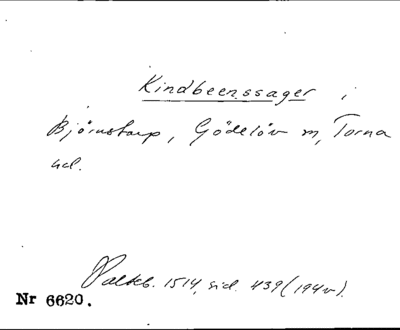 Kindbeenssager i
Björnstorp, Gödelöv m, Torna
hd.
Palteb. 1514, sid. 439 (194v).
Nr 6620.